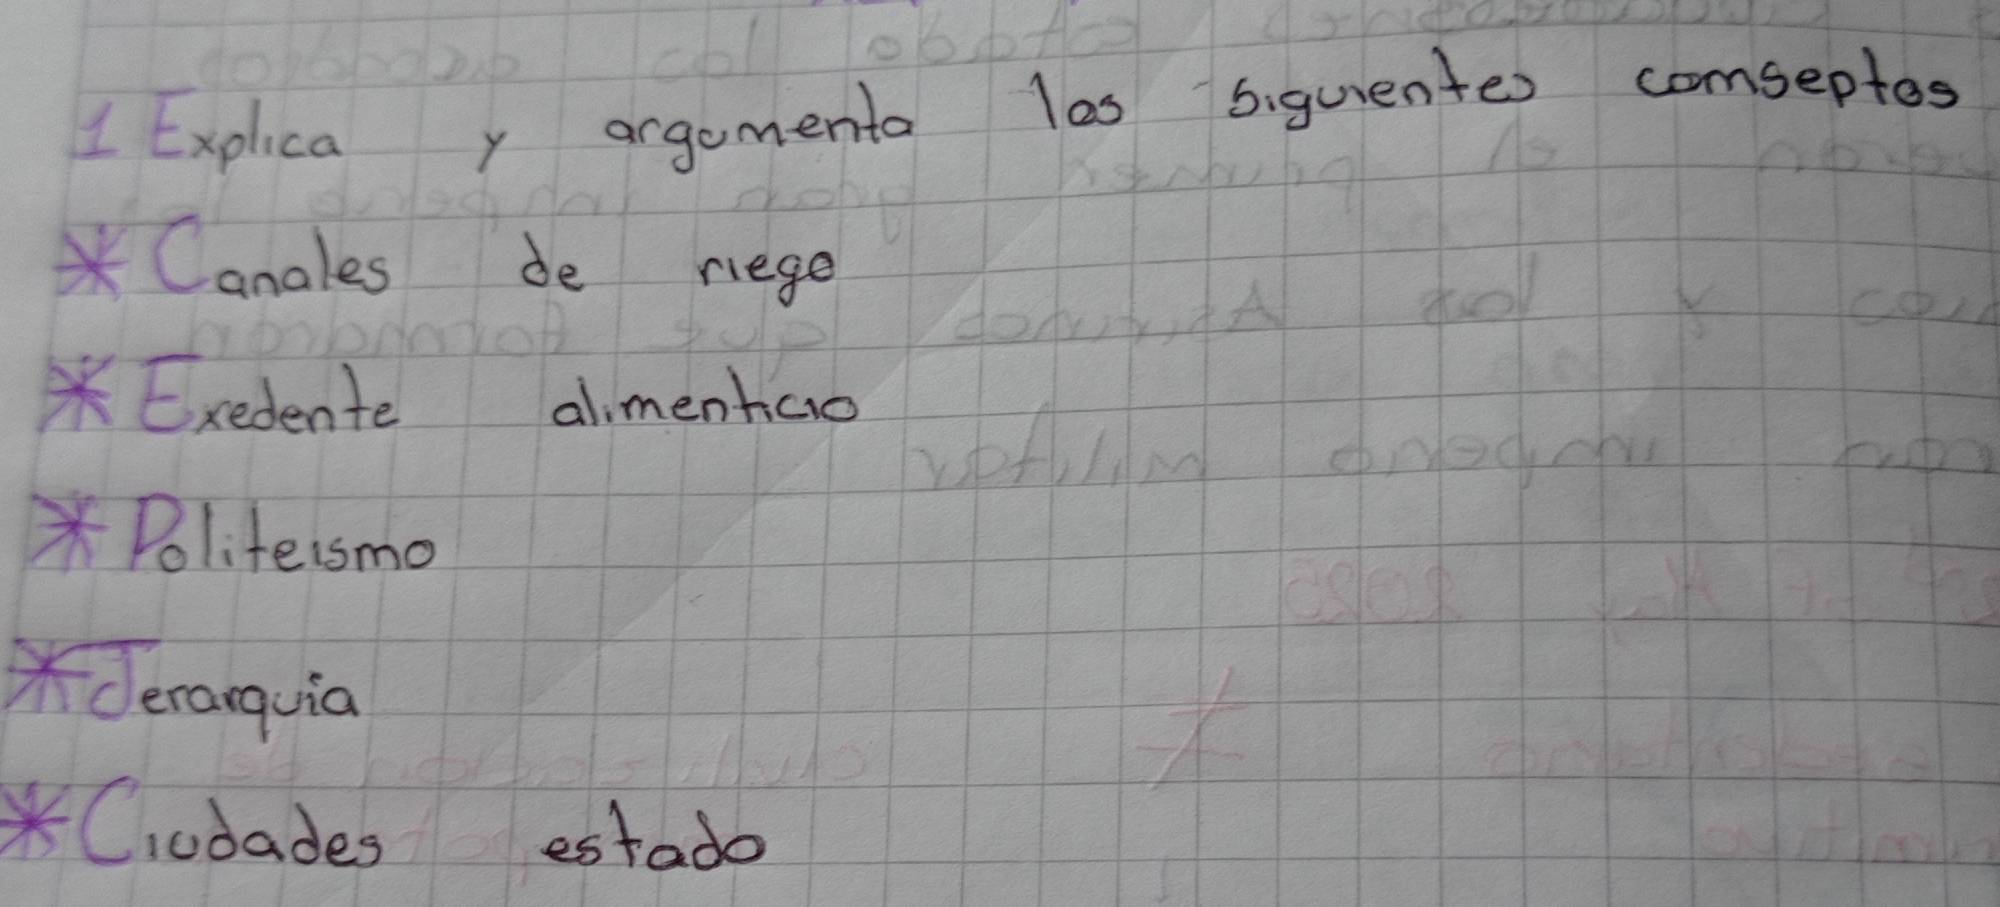 1 Explica y argumenta los siguientes comseptos
* Canales de riego
* Exedente alimenticio
* Politeismo
* Jerarquia
* Ciudades estado